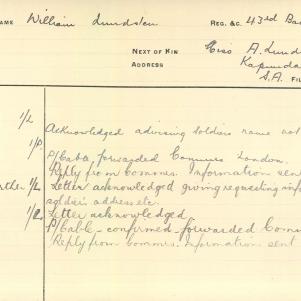 NAME William Lundsten REG. &C. 43rd Ba
NEXT OF KIN Miss A. Lund
ADDRESS Kapunda
S.A. FI
1/L Acknowledged advising soldiers name not
1/P
P/Cable forwarded Commrs London.
Reply from Commrs. Information sent
rther 1/L Letter acknowledged giving requesting inf
soldier's address etc.
1/L Letter acknowledged
P/Cable confirmed forwarded Comm
Reply from Commrs. Information sent